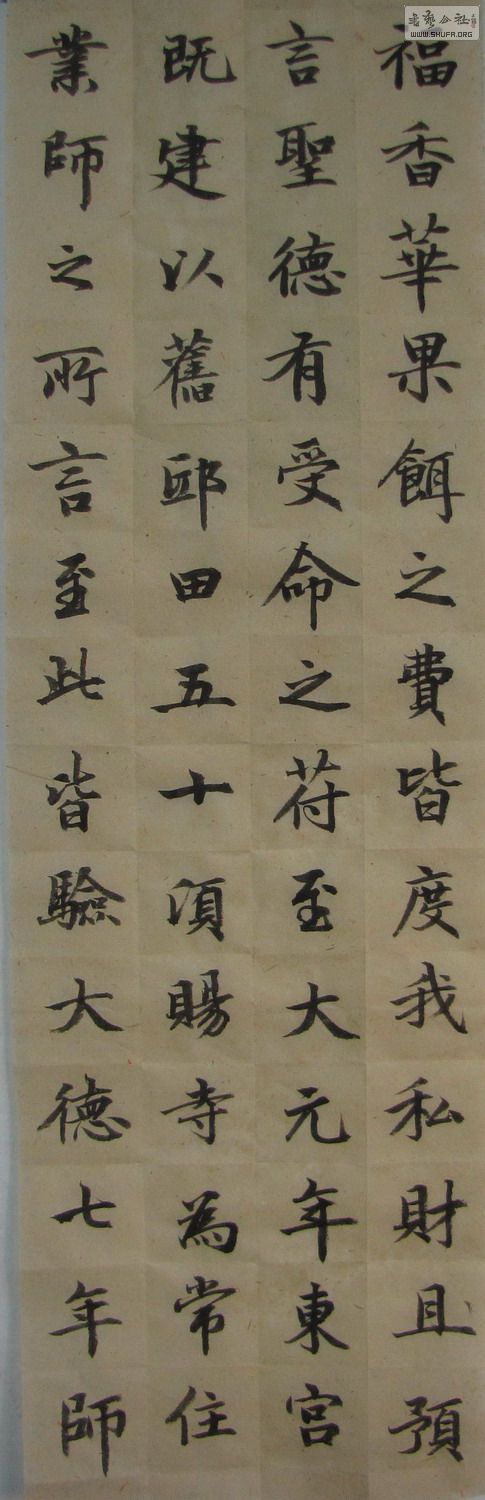 福香華果餌之費皆度我私財且預
言聖德有受命之苻至大元年東宮
既建以舊邸田五十頃賜寺為常住
業師之所言至此皆驗大德七年師
書藝公社
WWW.SHUFA.ORG